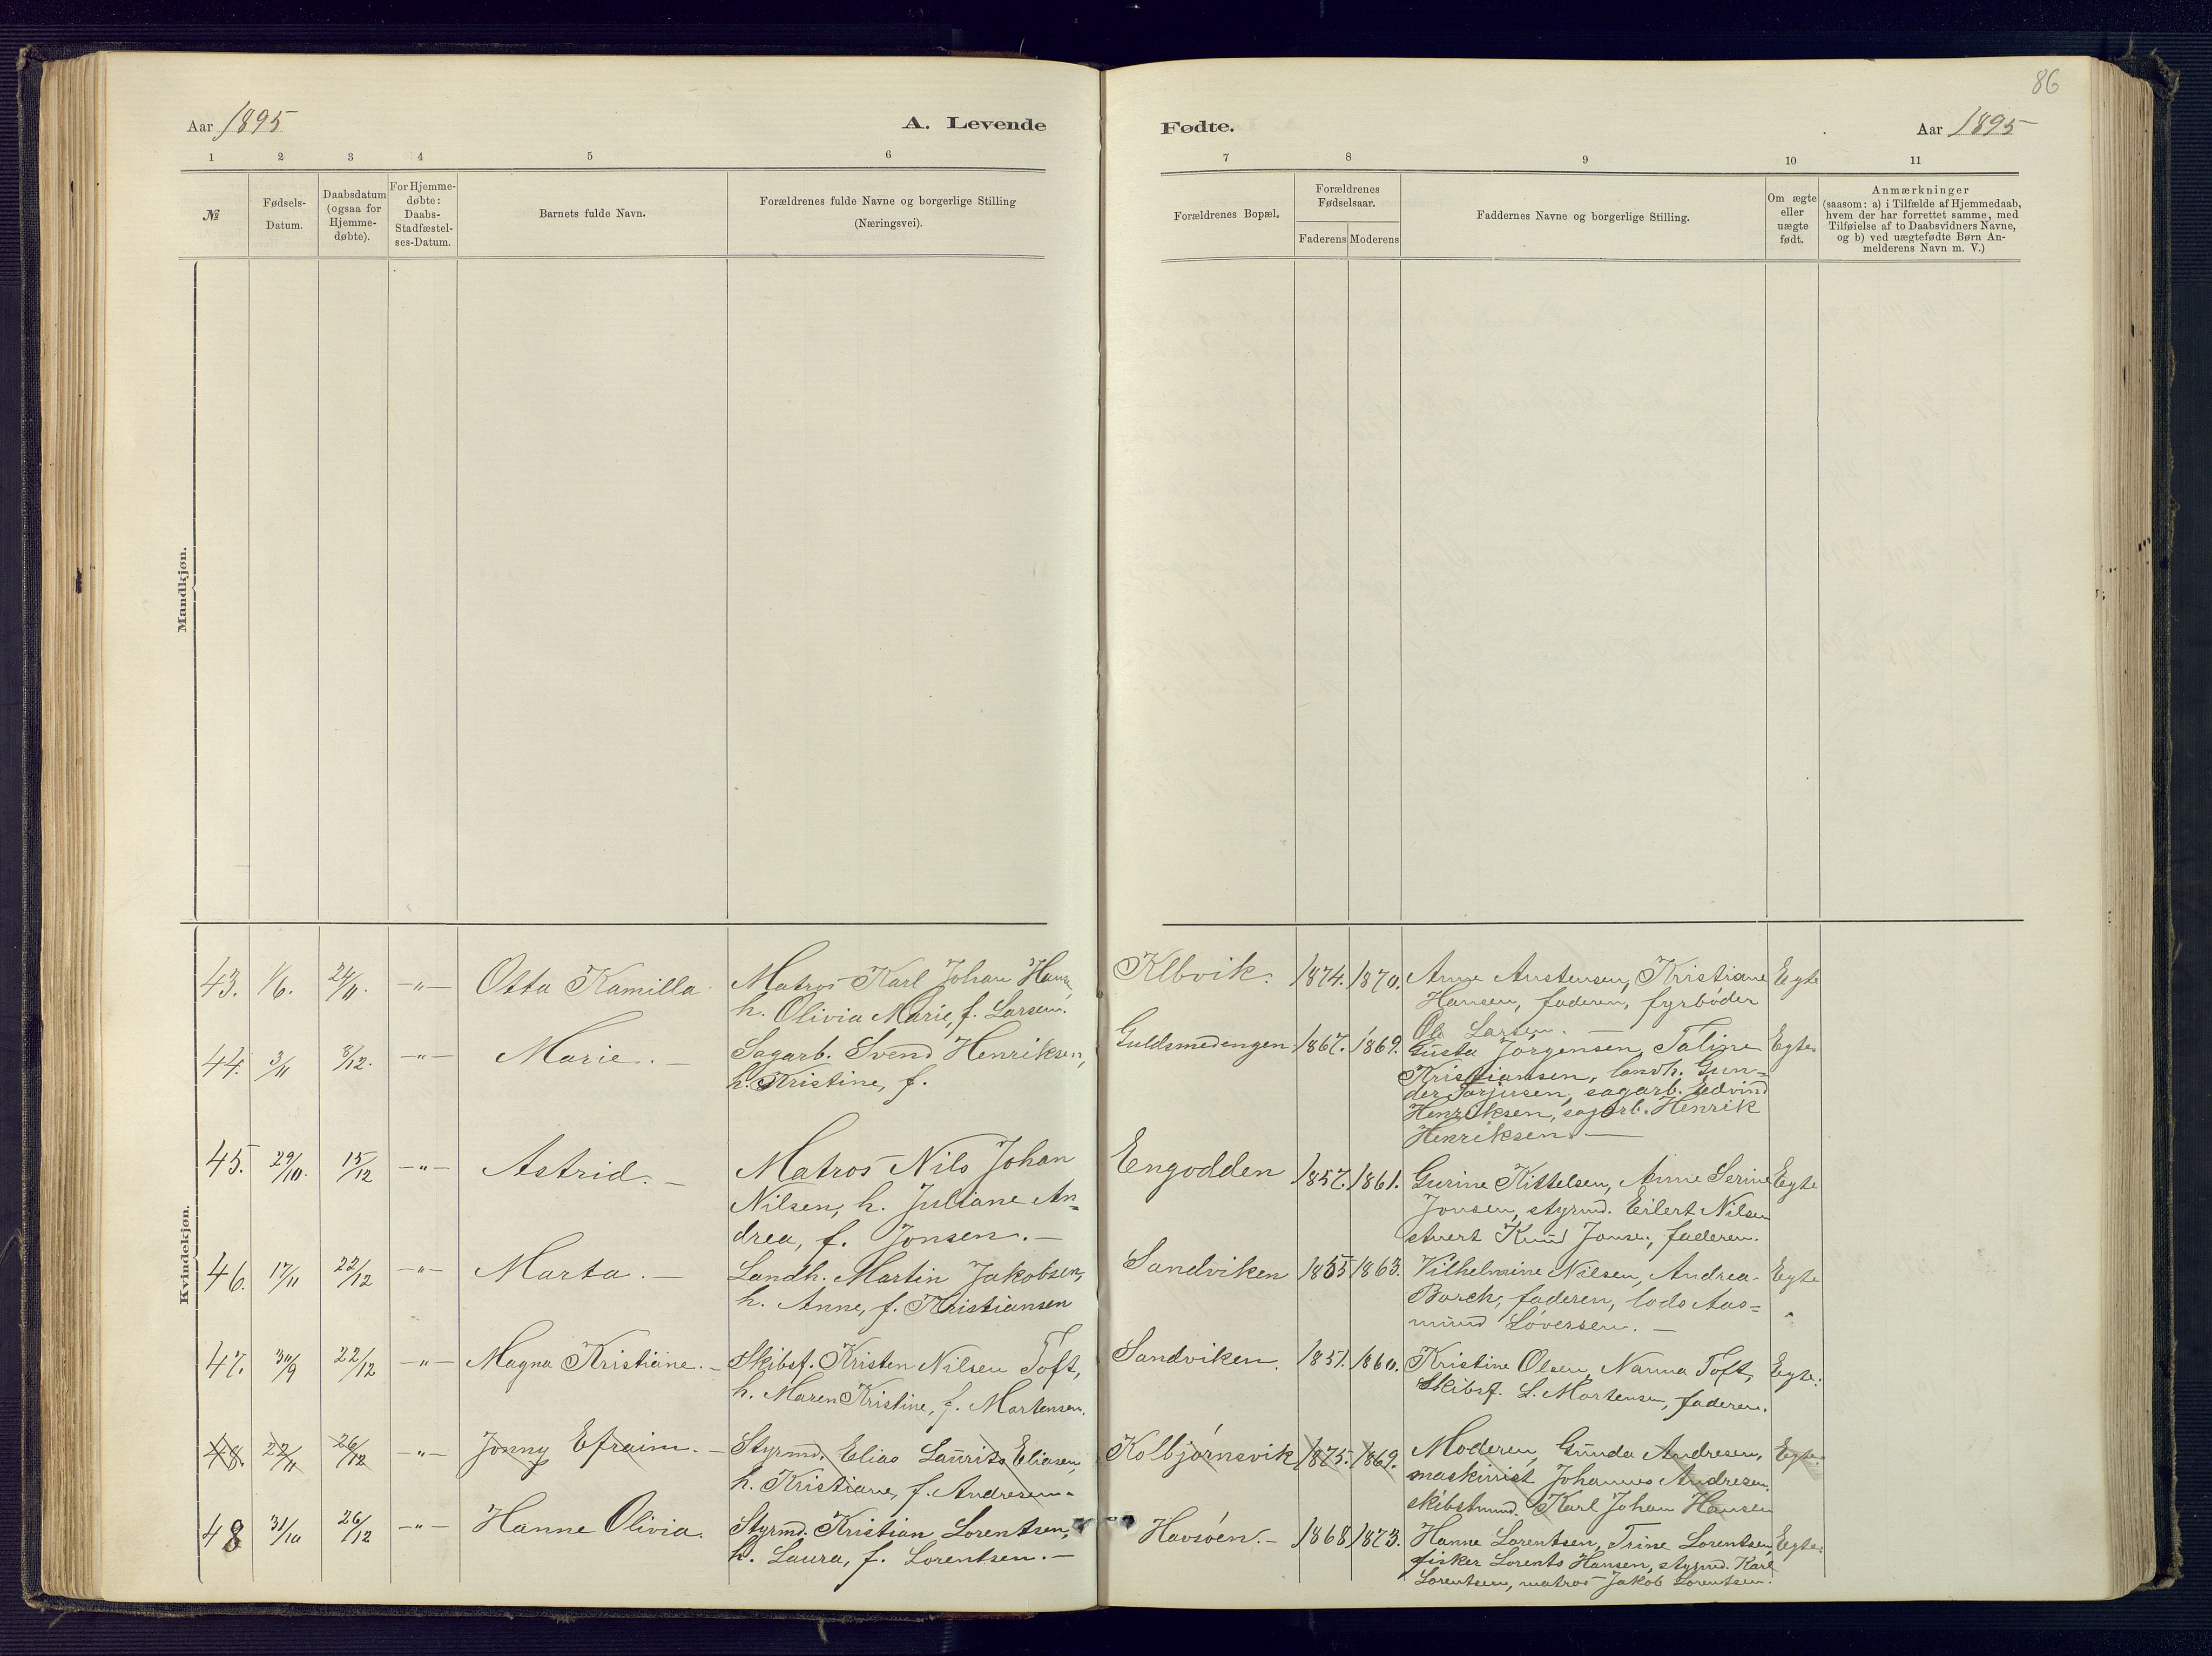 86
Aar 1895
A. Levende
Fødte.
Aar 1895
1 2 3 4 5 6 7 8 9 10 11
№
Fødsels-
Datum.
Daabsdatum
(ogsaa for
Hjemme-
døbte).
For Hjemme-
døbte:
Daabs-
Stadfæstel-
ses-Datum.
Barnets fulde Navn.
Forældrenes fulde Navne og borgerlige Stilling
(Næringsvei).
Forældrenes Bopæl.
Forældrenes
Fødselsaar.
Faderens Moderens
Faddernes Navne og borgerlige Stilling.
Om ægte
eller
uægte
født.
Anmærkninger
(saasom: a) i Tilfælde af Hjemmedaab,
hvem der har forrettet samme, med
Tilføielse af to Daabsvidners Navne,
og b) ved uægtefødte Børn An-
melderens Navn m. V.)
Mandkjøn.
Kvindekjøn.
43. 1/6. 24/11. -"- Otta Kamilla.
Matros Karl Johan
h. Olivia Marie, f. Larsen.
1874. 1870.
Anne Austensen, Kristiane
Hansen, faderen, fyrbøder
Ole Larsen.
Egte
44. 3/11 8/12. -"- Marie.
Sagarb. Svend Henriksen,
h. Kristine, f.
Guldsmedengen 1867. 1869.
Gusta Jørgensen, Taline
Kristiansen, landh. Gun=
der Tarjusen, sagarb. Edvind
Henriksen, sagarb. Henrik
Henriksen.
Egte
45. 29/10. 15/12 -"- Astrid.
Matros Nils Johan
Nilsen, h. Juliane An=
drea, f. Jonsen.
Engodden 1857. 1861.
Gurine Kittelsen, Anne Serine
Jonsen, styrmd. Eilert Nilsen
stuert Knud Jonse, faderen.
Egte
46. 17/11 22/12 -"- Marta.
Landh. Martin Jakobsen,
h. Anne, f. Kristiansen
Sandviken 1855 1863.
Vilhelmine Nilsen, Andrea
Borch, faderen, lods Aas=
mund Løversen.
Egte
47. 30/9 22/12 -"- Magna Kristiane.
Skibsf. Kristen Nilsen Toft,
h. Maren Kristine, f. Mortensen.
Sandviken. 1851. 1860.
Kristine Olsen, Nanna Toft,
Skibsf. L. Mortensen, faderen.
Egte.
48. 22/11 26/12 -"- Jonny Efraim.
Styrmd. Elias Laurits Eliasen,
h. Kristiane, f. Andresen.
Kolbjørnsvik 1875. 1869.
Moderen, Gunda Andresen,
maskinist Johannes Andresen,
skibstmd. Karl Johan Hansen
Egte.
48 31/10 26/12 -"- Hanne Olivia.
Styrmd. Kristian Lorentsen,
h. Laura, f. Lorentsen.
Havsøen. 1868 1873.
Hanne Lorentsen, Trine Lorentsen,
fisker Lorents Hansen, styrmd. Karl
Lorentsen, matros Jakob Lorentsen.
Egte.